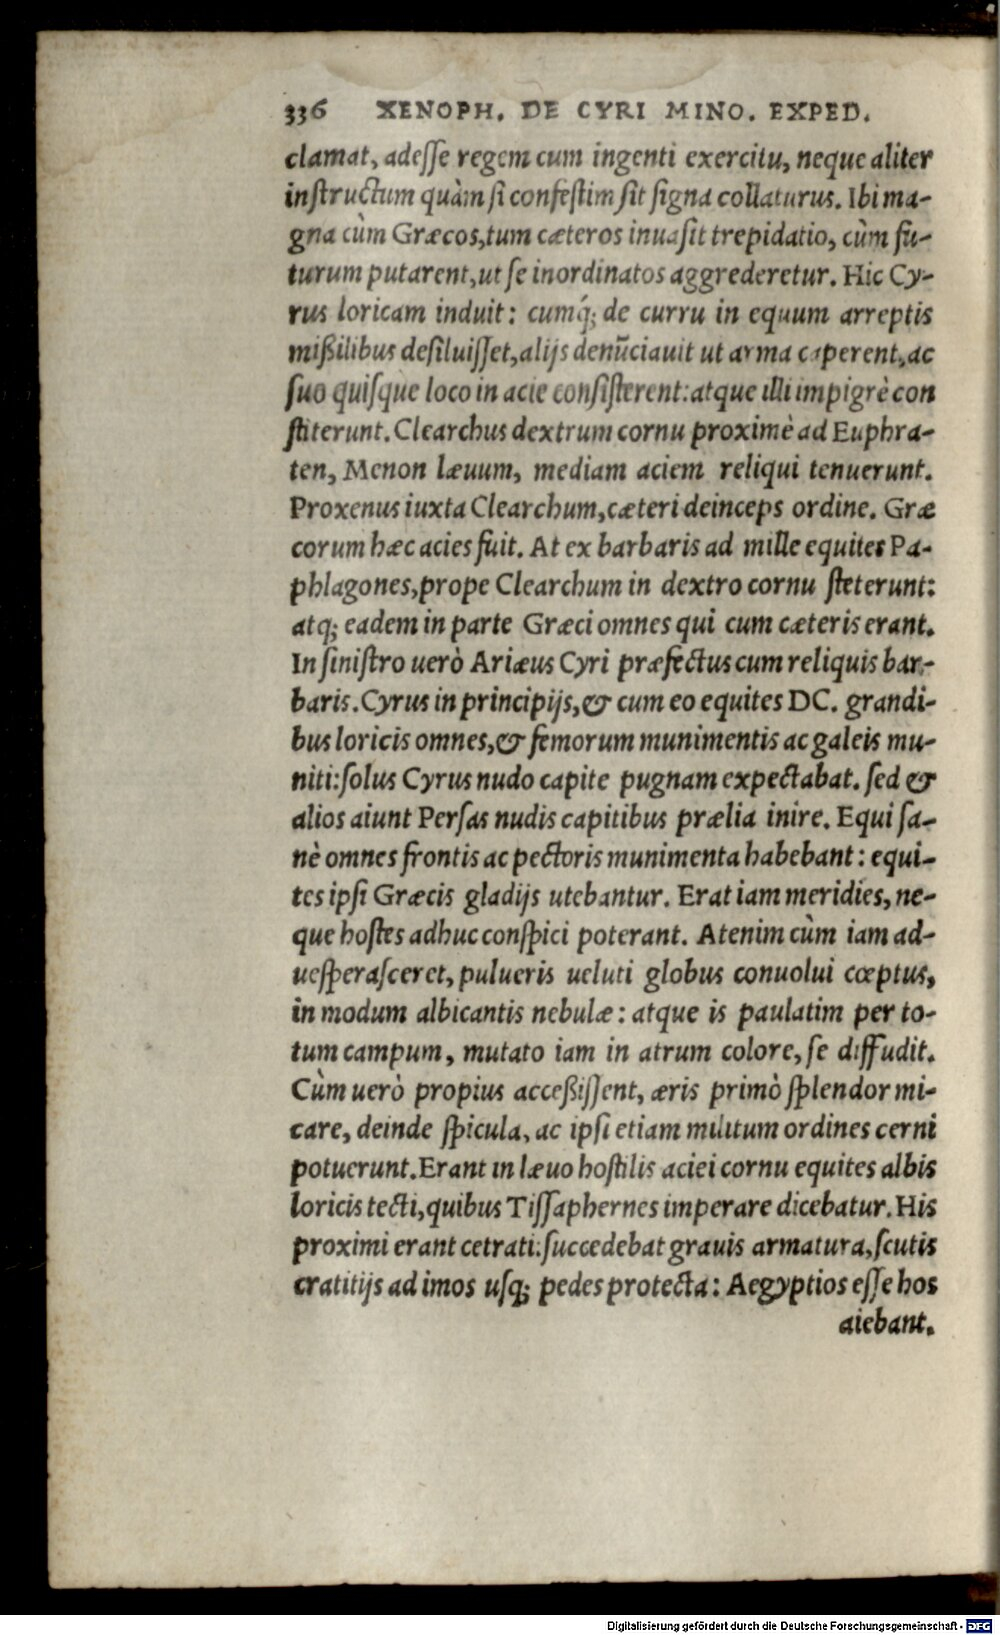 336 XENOPH. DE CYRI MINO. EXPED.
clamat, adesse regem cum ingenti exercitu, neque aliter
instructum quàm si confestim sit signa collaturus. Ibi ma-
gna cùm Græcos, tum cæteros inuasit trepidatio, cùm fu-
turum putarent, ut se inordinatos aggrederetur. Hic Cy-
rus loricam induit: cumq́; de curru in equum arreptis
mißilibus desiluisset, alijs denũciauit ut arma caperent, ac
suo quisque loco in acie consisterent: atque illi impigrè con
stiterunt. Clearchus dextrum cornu proximè ad Euphra-
ten, Menon læuum, mediam aciem reliqui tenuerunt.
Proxenus iuxta Clearchum, cæteri deinceps ordine. Græ
corum hæc acies fuit. At ex barbaris ad mille equites Pa-
phlagones, prope Clearchum in dextro cornu steterunt:
atq; eadem in parte Græci omnes qui cum cæteris erant.
In sinistro uerò Ariæus Cyri præfectus cum reliquis bar-
baris. Cyrus in principijs, & cum eo equites DC. grandi-
bus loricis omnes, & femorum munimentis ac galeis mu-
niti: solus Cyrus nudo capite pugnam expectabat. sed &
alios aiunt Persas nudis capitibus prælia inire. Equi sa-
nè omnes frontis ac pectoris munimenta habebant: equi-
tes ipsi Græcis gladijs utebantur. Erat iam meridies, ne-
que hostes adhuc conspici poterant. Atenim cùm iam ad-
uesperasceret, pulueris ueluti globus conuolui cœptus,
in modum albicantis nebulæ: atque is paulatim per to-
tum campum, mutato iam in atrum colore, se diffudit.
Cùm uerò propius acceßissent, æris primò splendor mi-
care, deinde spicula, ac ipsi etiam militum ordines cerni
potuerunt. Erant in læuo hostilis aciei cornu equites albis
loricis tecti, quibus Tissaphernes imperare dicebatur. His
proximi erant cetrati: succedebat grauis armatura, scutis
cratitijs ad imos usq; pedes protecta: Aegyptios esse hos
aiebant.
Digitalisierung gefördert durch die Deutsche Forschungsgemeinschaft - DFG